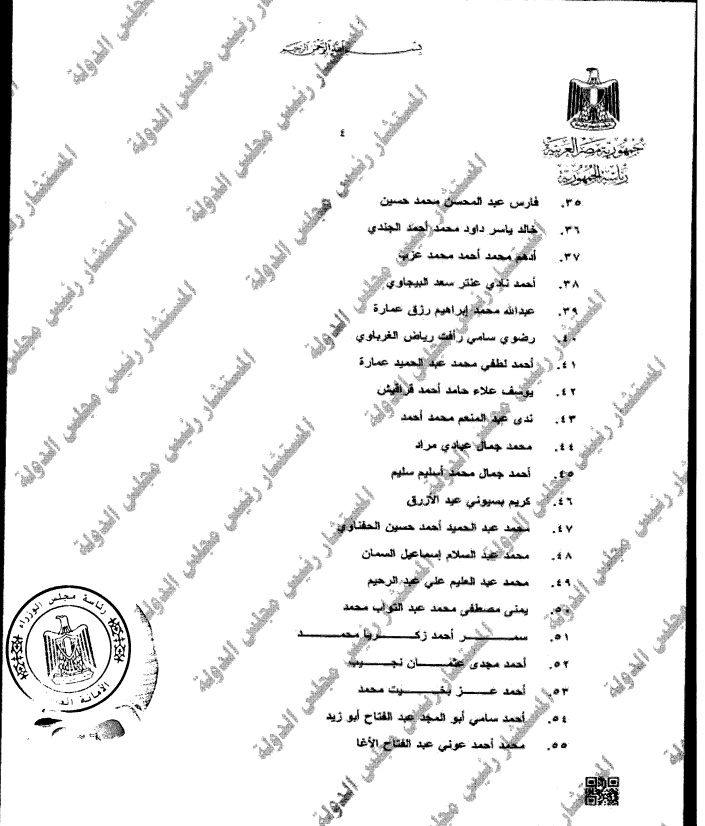 بسم الله الرحمن الرحيم
٤
جمهورية مصر العربية
رئاسة الجمهورية
٣٥. فارس عبد المحسن محمد حسين
٣٦. خالد ياسر داود محمد أحمد الجندي
٣٧. أدهم محمد أحمد محمد عزب
٣٨. أحمد نادي عنتر سعد البيجاوي
٣٩. عبدالله محمد إبراهيم رزق عمارة
٤٠. رضوي سامي رأفت رياض الغرباوي
٤١. أحمد لطفي محمد عبد الحميد عمارة
٤٢. يوسف علاء حامد أحمد قراقيش
٤٣. ندى عبد المنعم محمد أحمد
٤٤. محمد جمال عبادي مراد
٤٥. أحمد جمال محمد أسليم سليم
٤٦. كريم بسيوني عبد الأزرق
٤٧. محمد عبد الحميد أحمد حسين الحفناوي
٤٨. محمد عبد السلام إسماعيل السمان
٤٩. محمد عبد العليم علي عبد الرحيم
٥٠. يمنى مصطفى محمد عبد التواب محمد
٥١. سمـــــر أحمد زكـــــريا محمـــــد
٥٢. أحمد مجدى عثمـــان نجيـــب
٥٣. أحمد عـــز بخيـــت محمد
٥٤. أحمد سامي أبو المجد عبد الفتاح أبو زيد
٥٥. محمد أحمد عوني عبد الفتاح الأغا
رئاسة مجلس الوزراء
الأمانة
المستشار رئيس مجلس الدولة